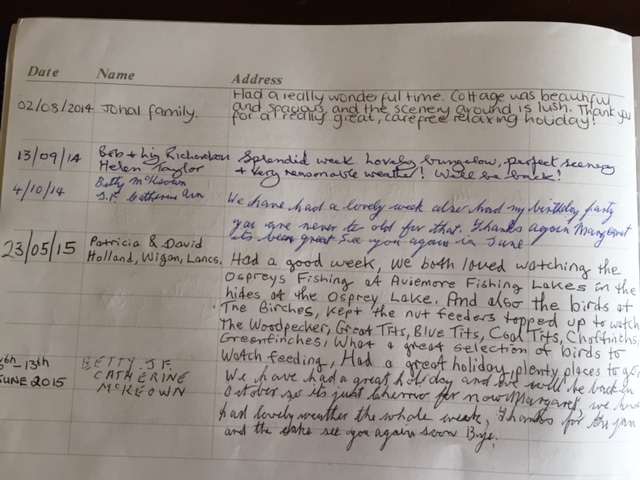 Date Name Address
02/08/2014 Johal family. Had a really wonderful time. Cottage was beautiful
and spacious, and the scenery around is lush. Thank you
for a really great, carefree relaxing holiday!
13/09/14 Bob + Liz Richardson Splendid week. Lovely bungalow, perfect scenery
Helen Taylor + very reasonable weather! We'll be back!
4/10/14 Betty McKeown
J.F. Catherine Ann We have had a lovely week also had my birthday party
you are never to old for that. Thanks again Margaret
its been great see you again in June
23/05/15 Patricia & David
Holland, Wigan, Lancs. Had a good week, We both loved watching the
Ospreys Fishing at Aviemore Fishing Lakes in the
hides at the Osprey Lake. And also the birds at
The Birches, kept the nut feeders topped up to watch
The Woodpecker, Great Tits, Blue Tits, Coal Tits, Chaffinchs,
Greenfinches, What a great selection of birds to
Watch feeding, Had a great holiday, plenty places to go,
6th - 13th BETTY. J.F. We have had a great holiday and we will be back in
JUNE 2015 CATHERINE October so its just cheerio for now Margaret, we have
McKEOWN had lovely weather the whole week, Thanks for the jam
and the cake see you again soon Bye.